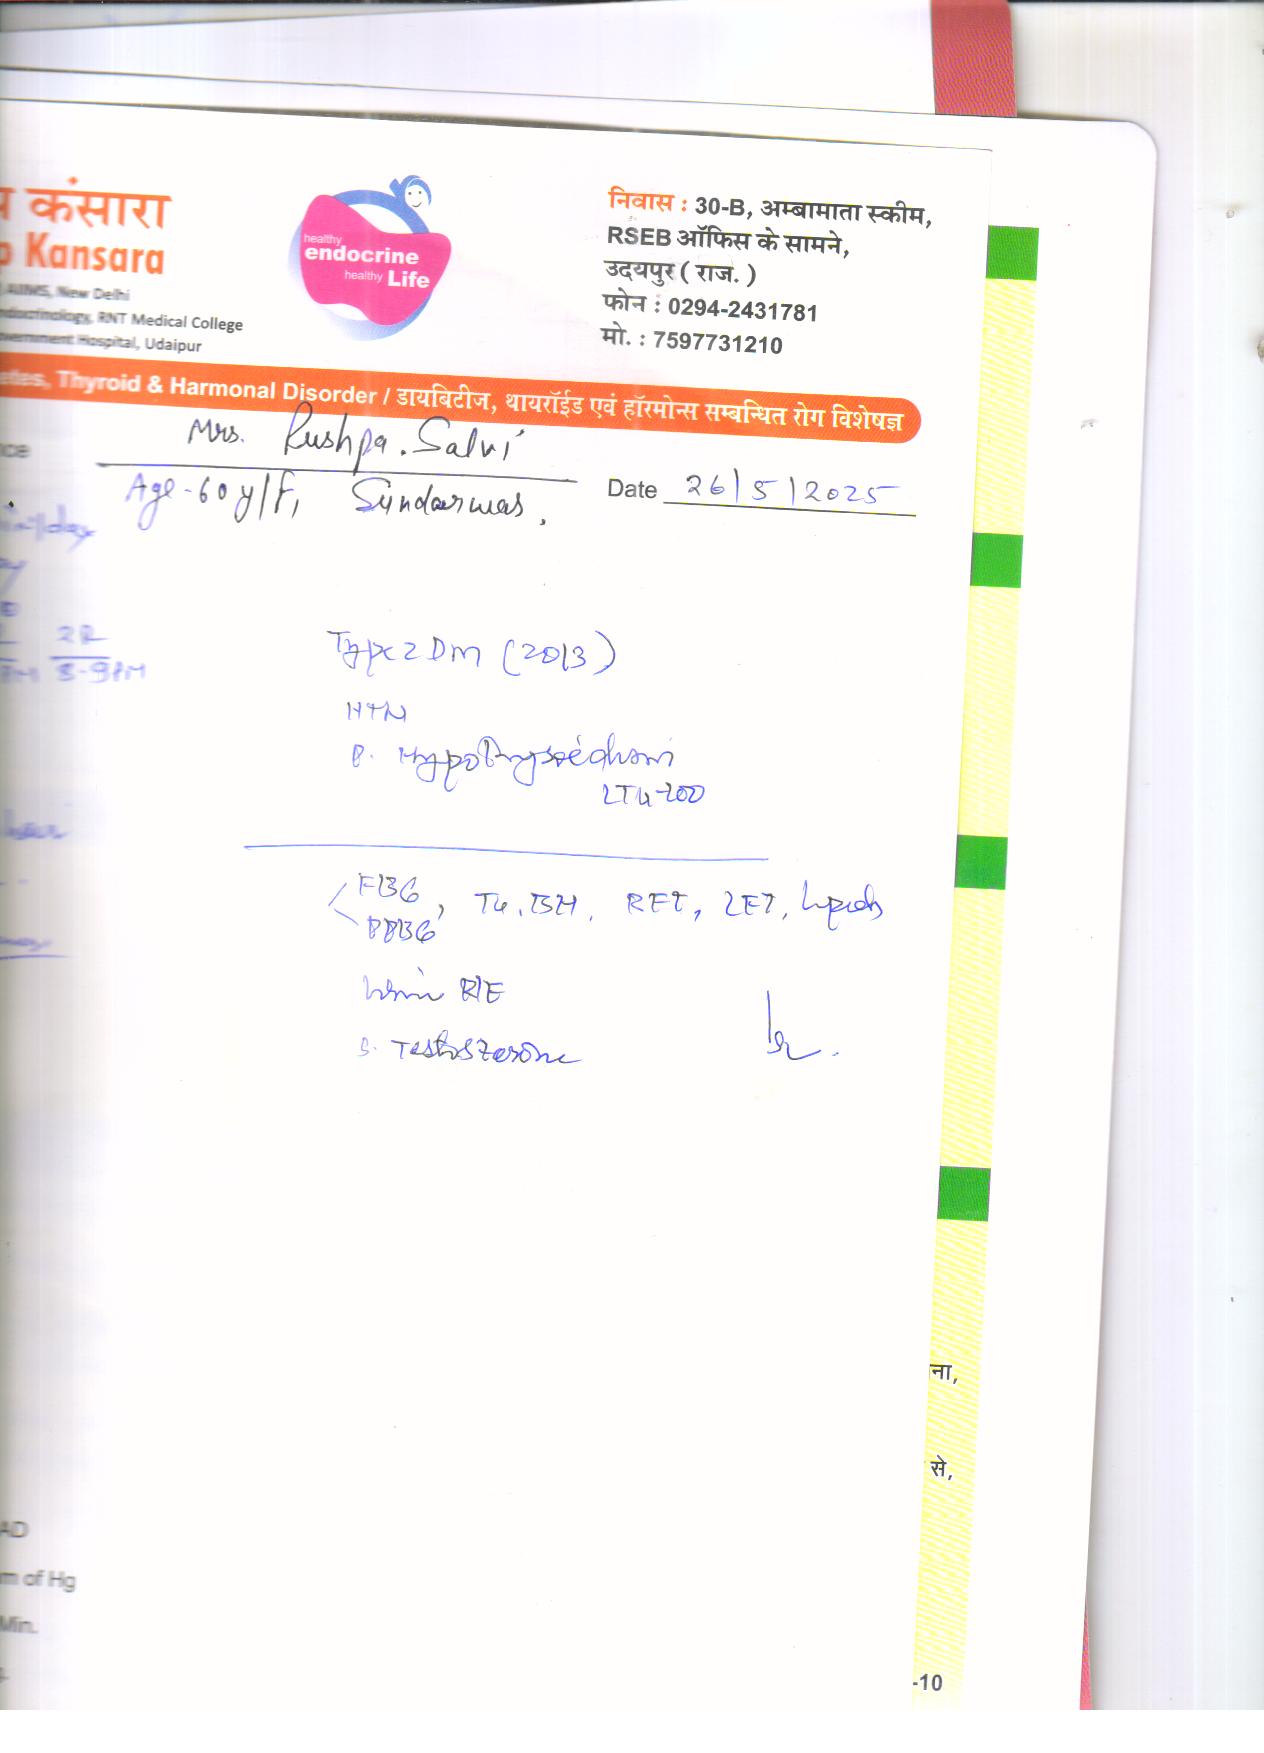 कंसारा
Kansara
AIIMS, New Delhi
RNT Medical College
Hospital, Udaipur
healthy
endocrine
healthy Life
निवास : 30-B, अम्बामाता स्कीम,
RSEB ऑफिस के सामने,
उदयपुर ( राज. )
फोन : 0294-2431781
मो. : 7597731210
Thyroid & Harmonal Disorder / डायबिटीज, थायरॉईड एवं हॉरमोन्स सम्बन्धित रोग विशेषज्ञ
Mrs. Pushpa. Salvi
Age-60y/F, Sunderwas.
Date 26/5/2025
/day
2R
8-9PM
Type 2 Dm (2013)
HTN
P. Hypothyroidism
LT4-100
FBG
PPBG, T4, TSH, RFT, LFT, Lipids
Urine R/E
S. Testosterone
AD
m of Hg
Min.
ना,
से,
-10